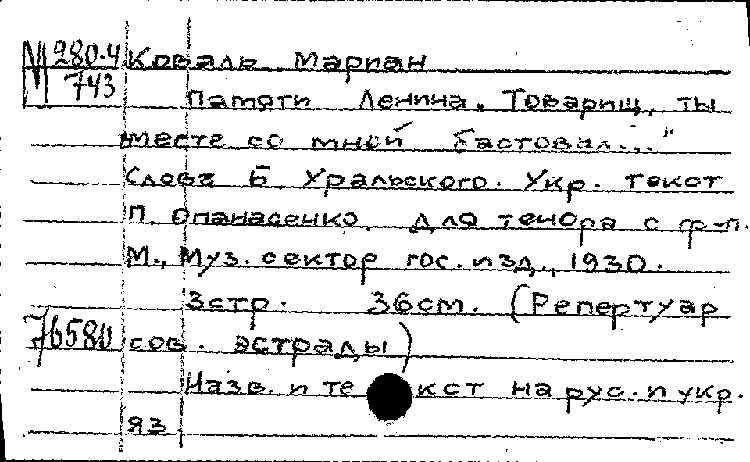 М 280.4 Коваль Мариан
743
Памяти Ленина. "Товарищ, ты
вместе со мной бастовал..."
Слова Б. Уральского. Укр. текст
П. Опанасенко. Для тенора с ф-п.
М., Муз. сектор гос. изд., 1930.
3 стр. 36 см. (Репертуар
76580 сов. эстрады)
Назв. и текст на рус. и укр.
яз